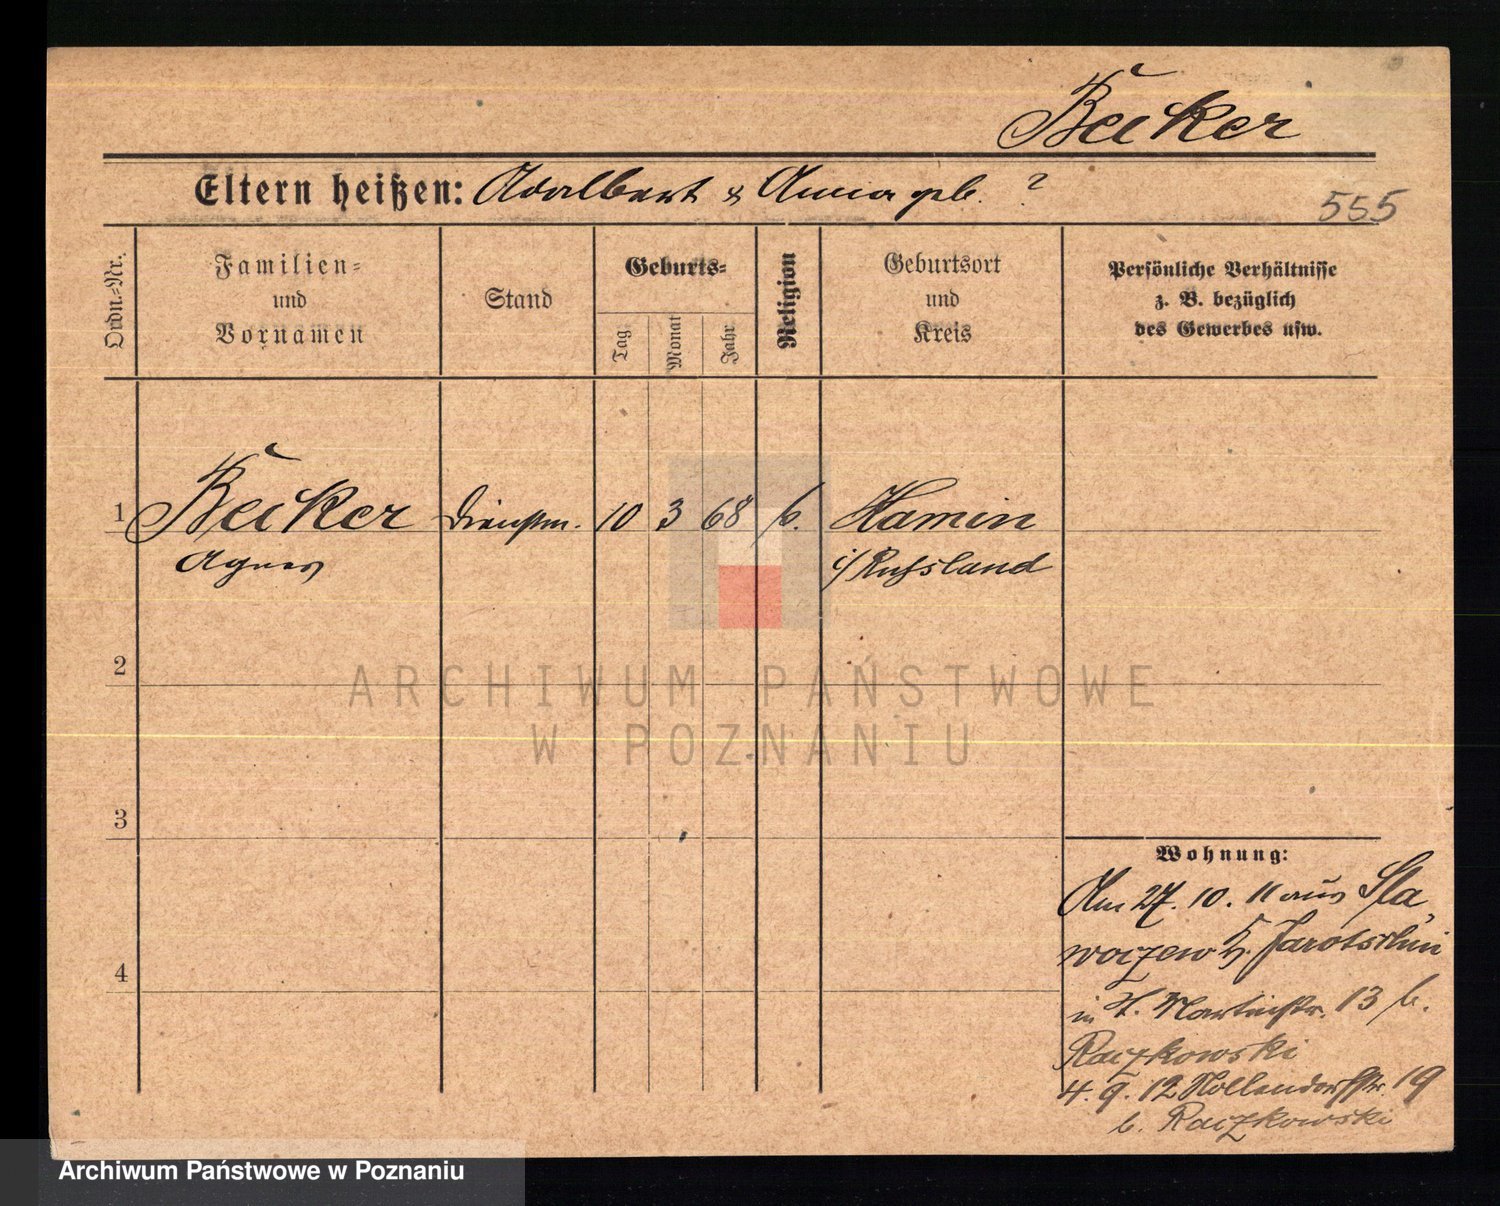 Becker
Eltern heißen: Adalbert & Anna geb. ?
555
Ordn.-Nr.
Familien-
und
Vornamen
Stand
Geburts-
Tag
Monat
Jahr
Religion
Geburtsort
und
Kreis
Persönliche Verhältnisse
z. B. bezüglich
des Gewerbes usw.
1 Becker Dienstm. 10 3 68 k. Hamin
Agnes i/Russland
2
ARCHIWUM PAŃSTWOWE
W POZNANIU
3
Wohnung:
Am 27. 10. 11 aus Sla
woczew K. Jarotschin
4
in St. Martinstr. 13 b.
Raczkowski
4. 9. 12 Nollendorfstr. 19
b. Raczkowski
Archiwum Państwowe w Poznaniu